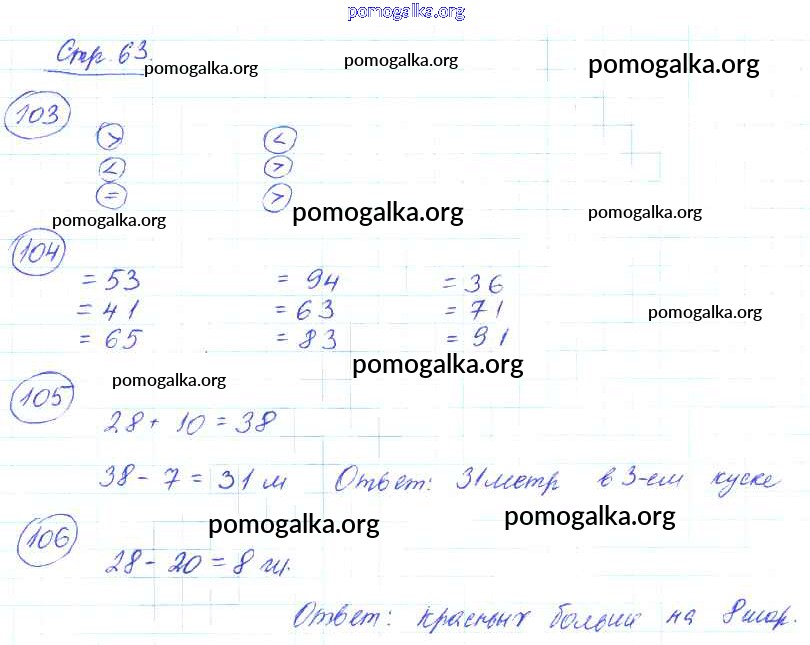 pomogalka.org
Стр. 63.
pomogalka.org pomogalka.org pomogalka.org
103
> <
< >
= >
pomogalka.org pomogalka.org pomogalka.org
104
= 53 = 94 = 36
= 41 = 63 = 71
= 65 = 83 = 91
pomogalka.org
pomogalka.org pomogalka.org
105
28 + 10 = 38
38 - 7 = 31 м Ответ: 31 метр в 3-ем куске
pomogalka.org pomogalka.org
106
28 - 20 = 8 ш.
Ответ: красных больш на 8 шар.